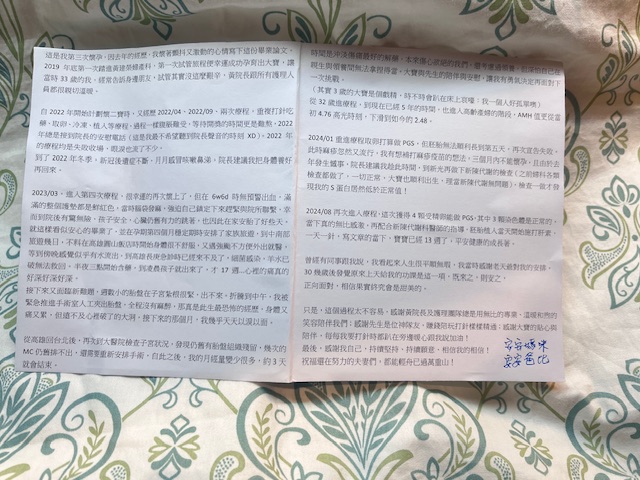 這是我第三次懷孕,因去年的經歷,我懷著顫抖又激動的心情寫下這份畢業論文。
2019 年底第一次踏進黃建榮婦產科,第一次試管旅程便幸運成功孕育出大寶,
當時33歲的我,經常告訴身邊朋友,試管其實沒這麼艱辛,黃院長跟所有護理人
員都很親切溫暖。
自2022年開始計劃懷二寶時,又經歷2022/04、2022/09、兩次療程,重複打針吃
藥、取卵、冷凍、植入等療程,過程一樣艱難難受,等待開獎的時間更是難熬,2022
年總是接到院長的安慰電話(這是我最不希望聽到院長聲音的時刻 XD)。2022年
的療程均是失敗收場,眼淚也流了不少。
到了2022年冬季,新冠後遺症不斷,月月感冒咳嗽鼻涕,院長建議我把身體養好
再回來。
2023/03,進入第四次療程,很幸運的再次懷上了,但在 6w6d 時無預警出血,滿
滿的整個護墊都是鮮紅色,當時腦袋發麻,強迫自己鎮定下來趕緊與院所聯繫,幸
而到院後有驚無險,孩子安全,心臟仍舊有力的跳著,也因此在家安胎了好些天,
就這樣看似安心的畢業了,並在孕期第四個月穩定期時安排了家族旅遊,到中南部
旅遊幾日,不料在高雄圓山飯店時開始身體很不舒服,又適逢颱風不方便外出就醫,
等到傍晚感覺似乎有水流出,到高雄長庚急診時已經來不及了,細菌感染,羊水已
破無法救回,半夜三點開始含藥,到凌晨孩子就出來了,才17週…心裡的痛真的
好深好深好深。
接下來又面臨新難題,週數小的胎盤在子宮紮根很緊,出不來,折騰到中午,我被
緊急推進手術室人工夾出胎盤,全程沒有麻醉,那真是此生最恐怖的經歷,身體又
痛又累,但遠不及心裡破了的大洞,接下來的那個月,我幾乎天天以淚以面。
從高雄回台北後,再次到大醫院檢查子宮狀況,發現仍舊有胎盤組織殘留,幾次的
MC 仍舊排不出,還需要重新安排手術,自此之後,我的月經量變少很多,約3天
就會結束。
時間是沖淡傷痛最好的解藥,本來傷心欲絕的我們,
親生與領養間無法拿捏得當,大寶與先生的陪伴與安慰,讓我有勇氣決定再面對下
一次挑戰。
(其實3歲的大寶是個戲精,時不時會趴在床上哀嚎:我一個人好孤單唷)
從32歲進療程,到現在已經5年的時間,也進入高齡產婦的階段,AMH 值更從當
初 4.76 高光時刻,下滑到如今的 2.48。
2024/01 重進療程取卵打算做 PGS,但胚胎無法順利長到第五天,再次宣告失敗,
此時麻疹忽然又流行,我有想補打麻疹疫苗的想法,三個月內不能懷孕,且由於去
年發生憾事,院長建議我趁此時間,到新光再做下新陳代謝的檢查(之前婦科各類
檢查都做了,一切正常,大寶也順利出生,理當新陳代謝無問題),檢查一做才發
現我的 S 蛋白居然低於正常值!
2024/08 再次進入療程,這次獲得4顆受精卵能做 PGS,其中3顆染色體是正常的,
當下真的無比感激,再配合新陳代謝科醫師的指導,胚胎植入當天開始施打肝素,
一天一針,寫文章的當下,寶寶已經13週了,平安健康的成長著。
曾經有同事跟我說,我看起來人生很平順無瑕,我當時感謝老天過對我的安排,
30幾歲後發覺原來上天給我的功課是這一項,既來之,則安之。
正向面對,相信果實終究會是甜美的。
只是,這個過程太不容易,感謝黃院長及護理團隊總是用無比的專業、這暖和煦的
笑容陪伴我們;感謝先生是位神隊友,賺錢陪玩打針樣樣精通;感謝大寶的貼心與
陪伴,每每我要打針時都趴在旁邊暖心跟我說加油!
最後,感謝我自己,持續堅持、持續願意、相信我的相信!
祝福還在努力的夫妻們,都能輕舟已過萬重山!
安安媽咪
安安爸比